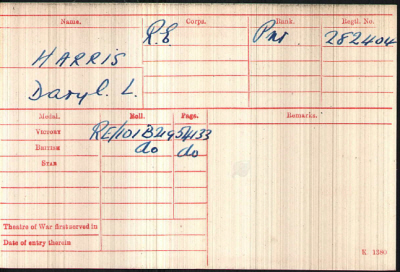 Name. Corps. Rank. Regtl. No.
HARRIS R.E Pnr 282404
Daryl. L.
Medal. Roll. Page.
Victory RE/101B219 54133
British do do
Star
Remarks.
Theatre of War first served in
Date of entry therein
K 1380